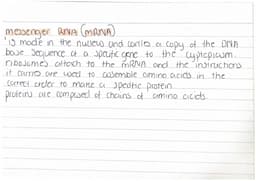 messenger RNA (mRNA)
is made in the nucleus and carries a copy of the DNA
base sequence of a specific gene to the cytoplasm.
ribosomes attach to the mRNA and the instructions
it carries are used to assemble amino acids in the
correct order to make a specific protein
proteins are composed of chains of amino acids.